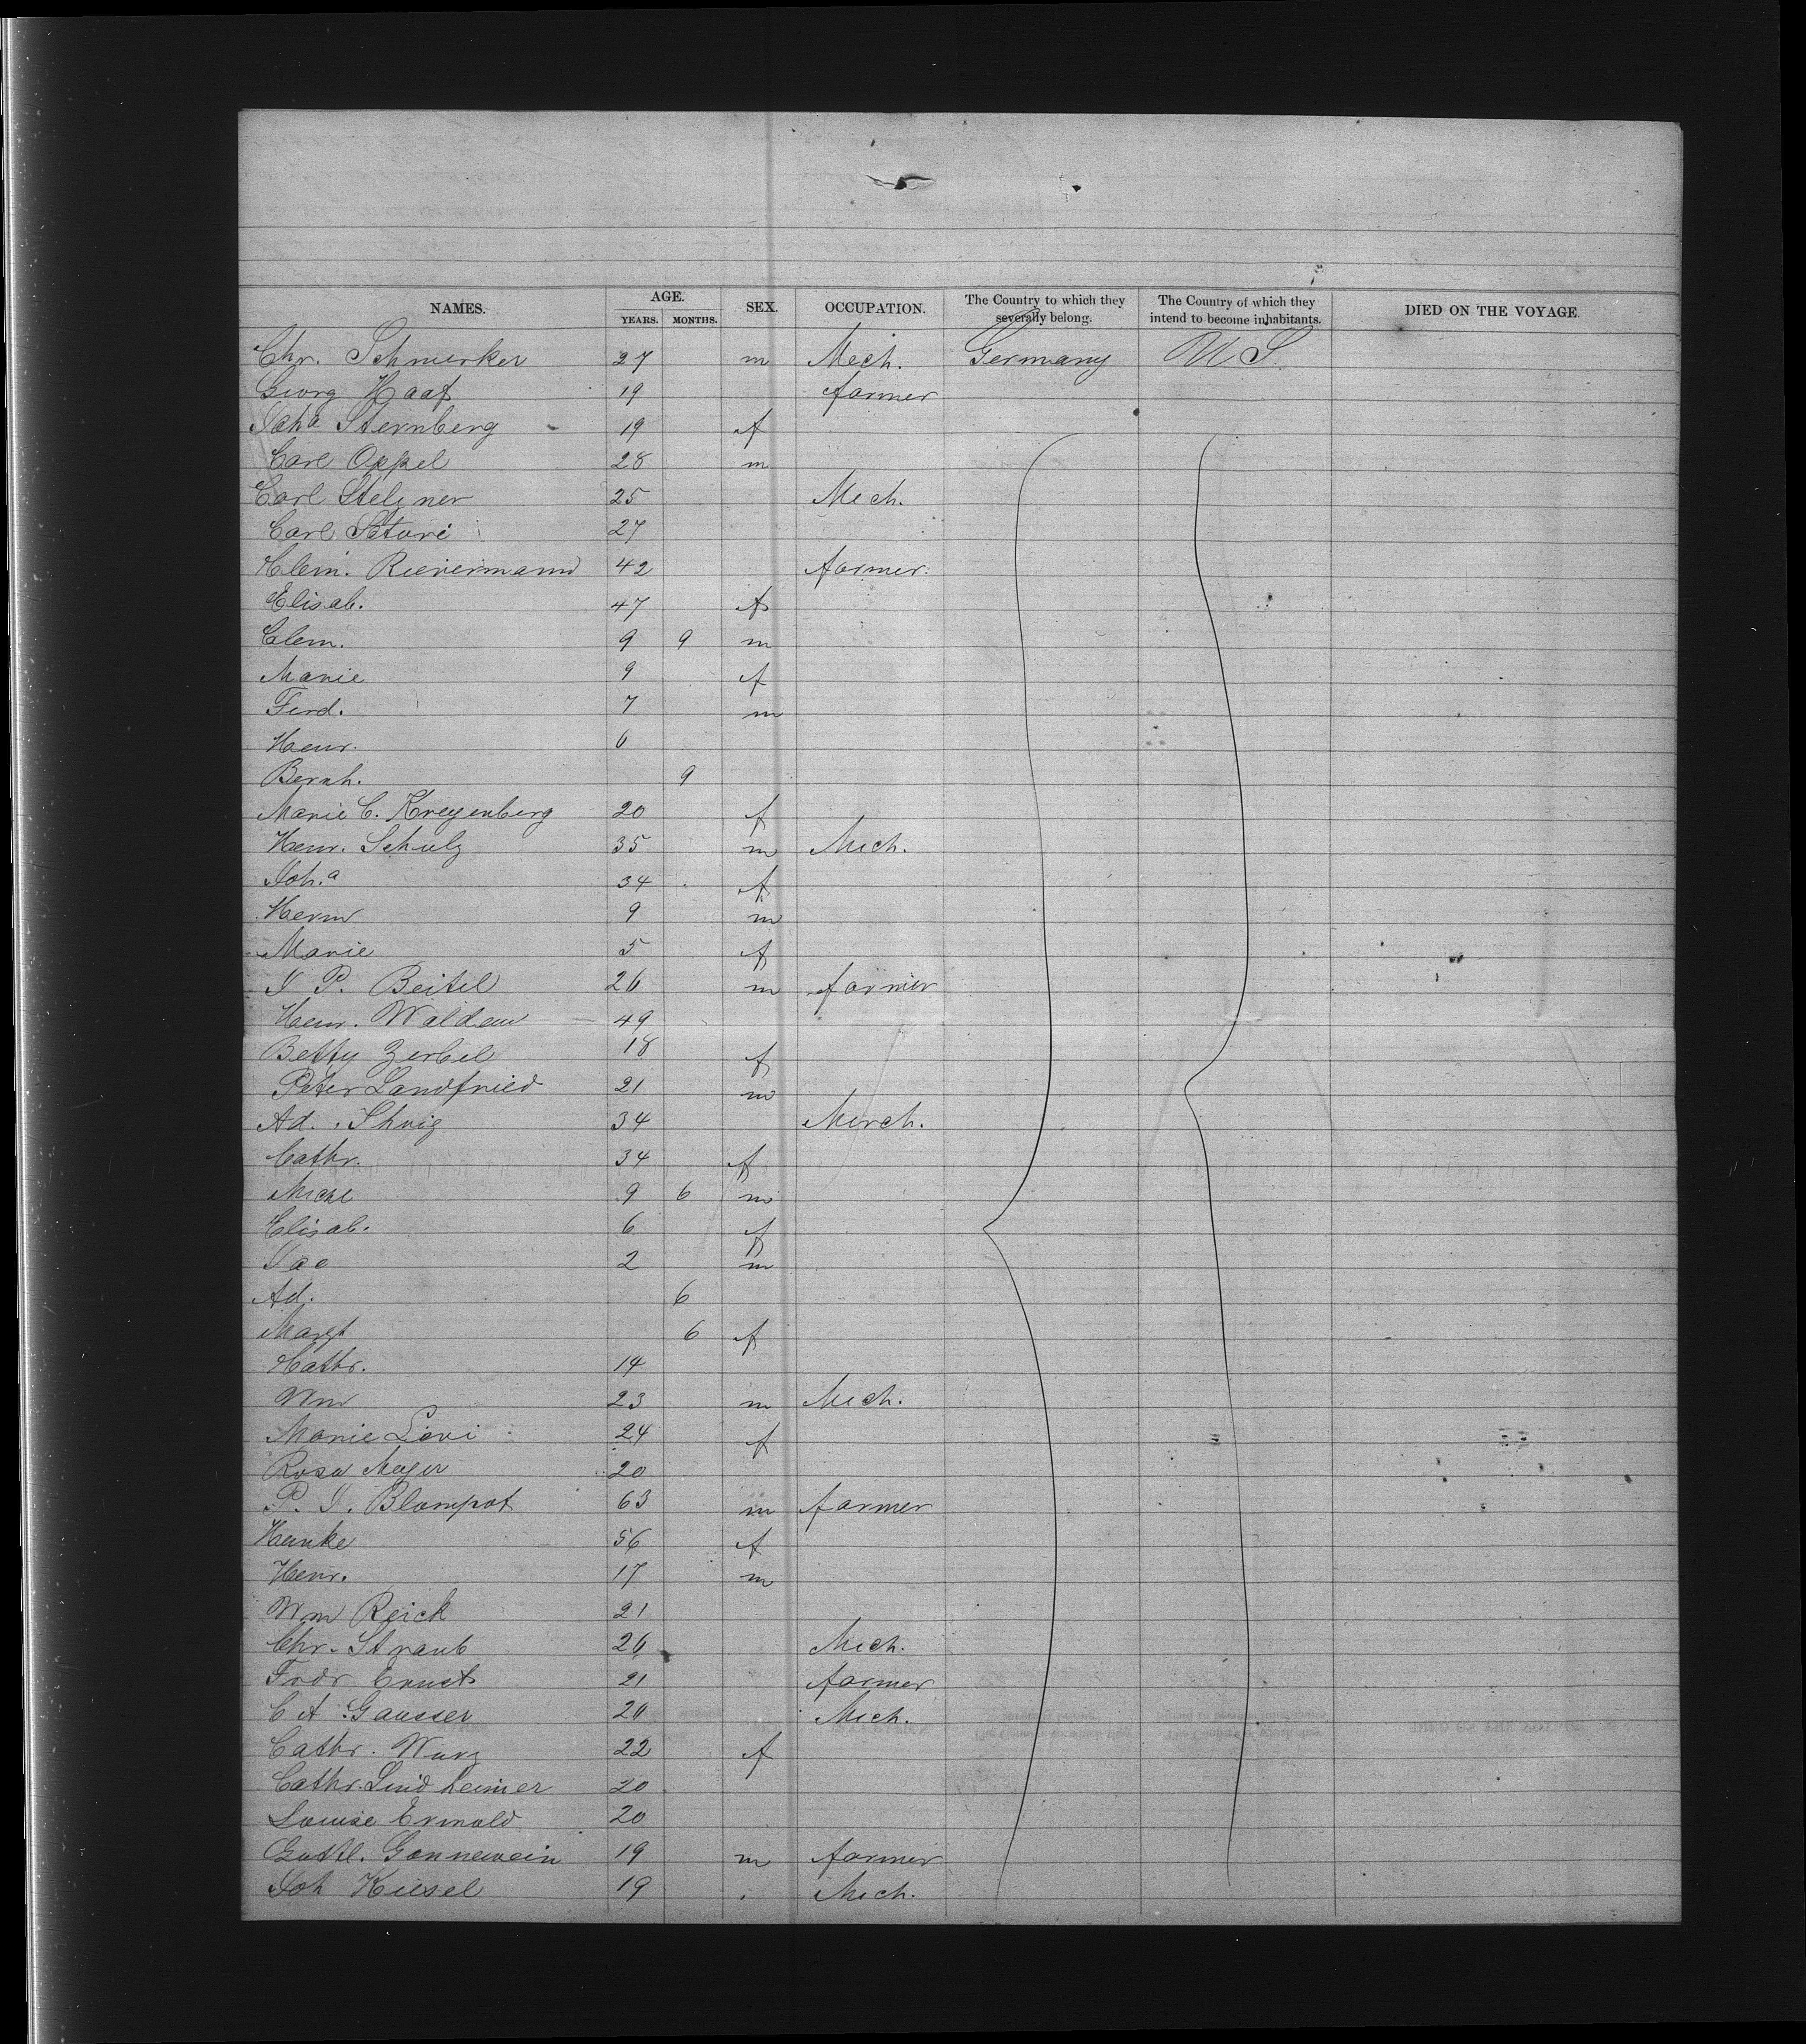 NAMES. AGE. SEX. OCCUPATION. The Country to which they severally belong. The Country of which they intend to become inhabitants. DIED ON THE VOYAGE
YEARS. MONTHS.
Chr. Schmerker 27 m Mech. Germany U S.
Georg Haaf 19 farmer
Joha Sternberg 19 f
Carl Oppel 28 m
Carl Stelzner 25 Mech.
Carl Satori 27
Clem. Rievermann 42 farmer.
Elisab. 47 f
Clem. 9 9 m
Marie 9 f
Ferd. 7 m
Henr. 6
Bernh. 9
Marie C. Kreyenberg 20 f
Henr. Schulz 35 m Mech.
Joh.a 34 f
Herm 9 m
Marie 5 f
J P. Beitel 26 m farmer
Henr. Waldau 49
Betty Zerbel 18 f
Peter Landfried 21 m
Ad. 34 Merch.
Cathr. 34 f
9 6 m
Elisab. 6 f
Jac 2 m
Ad. 6
Margt 6 f
Cathr. 14
Wm 23 m Mech.
Marie Levi 24 f
Rosa Meyer 20
P. J. Blampot 63 m farmer
Henke 56 f
Henr. 17 m
Wm Reick 21
Chr. Straub 26 Mech.
Fredr Ernst 21 farmer
C A Gausser 26 Mech.
Cathr. Wurz 22 f
Cathr. Lindheimer 20
Louise Ermold 20
Gottl. Gonnewein 19 m farmer
Joh Kiesel 19 Mech.